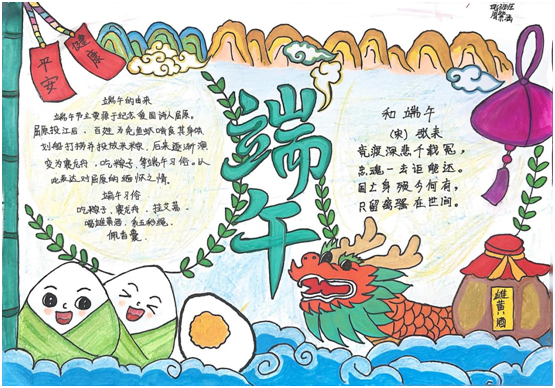 平安
健康
端午的由来
端午节主要源于纪念爱国诗人屈原。
屈原投江后，百姓为免鱼虾啃食其身体
划船打捞并投放米粮，后来逐渐演
变为赛龙舟，吃粽子等端午习俗。以
此表达对屈原的缅怀之情。
端午习俗
吃粽子、赛龙舟、挂艾草、
喝雄黄酒、系五彩绳、
佩香囊
端午
和端午
(宋) 张耒
竞渡深悲千载冤，
忠魂一去讵能还。
国亡身殒今何有，
只留离骚在世间。
雄黄酒